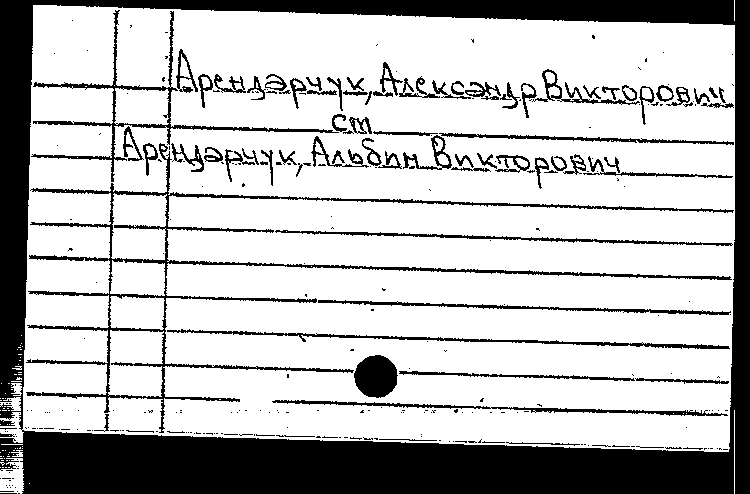 Арендарчук, Александр Викторович
ст
Арендарчук, Альбин Викторович